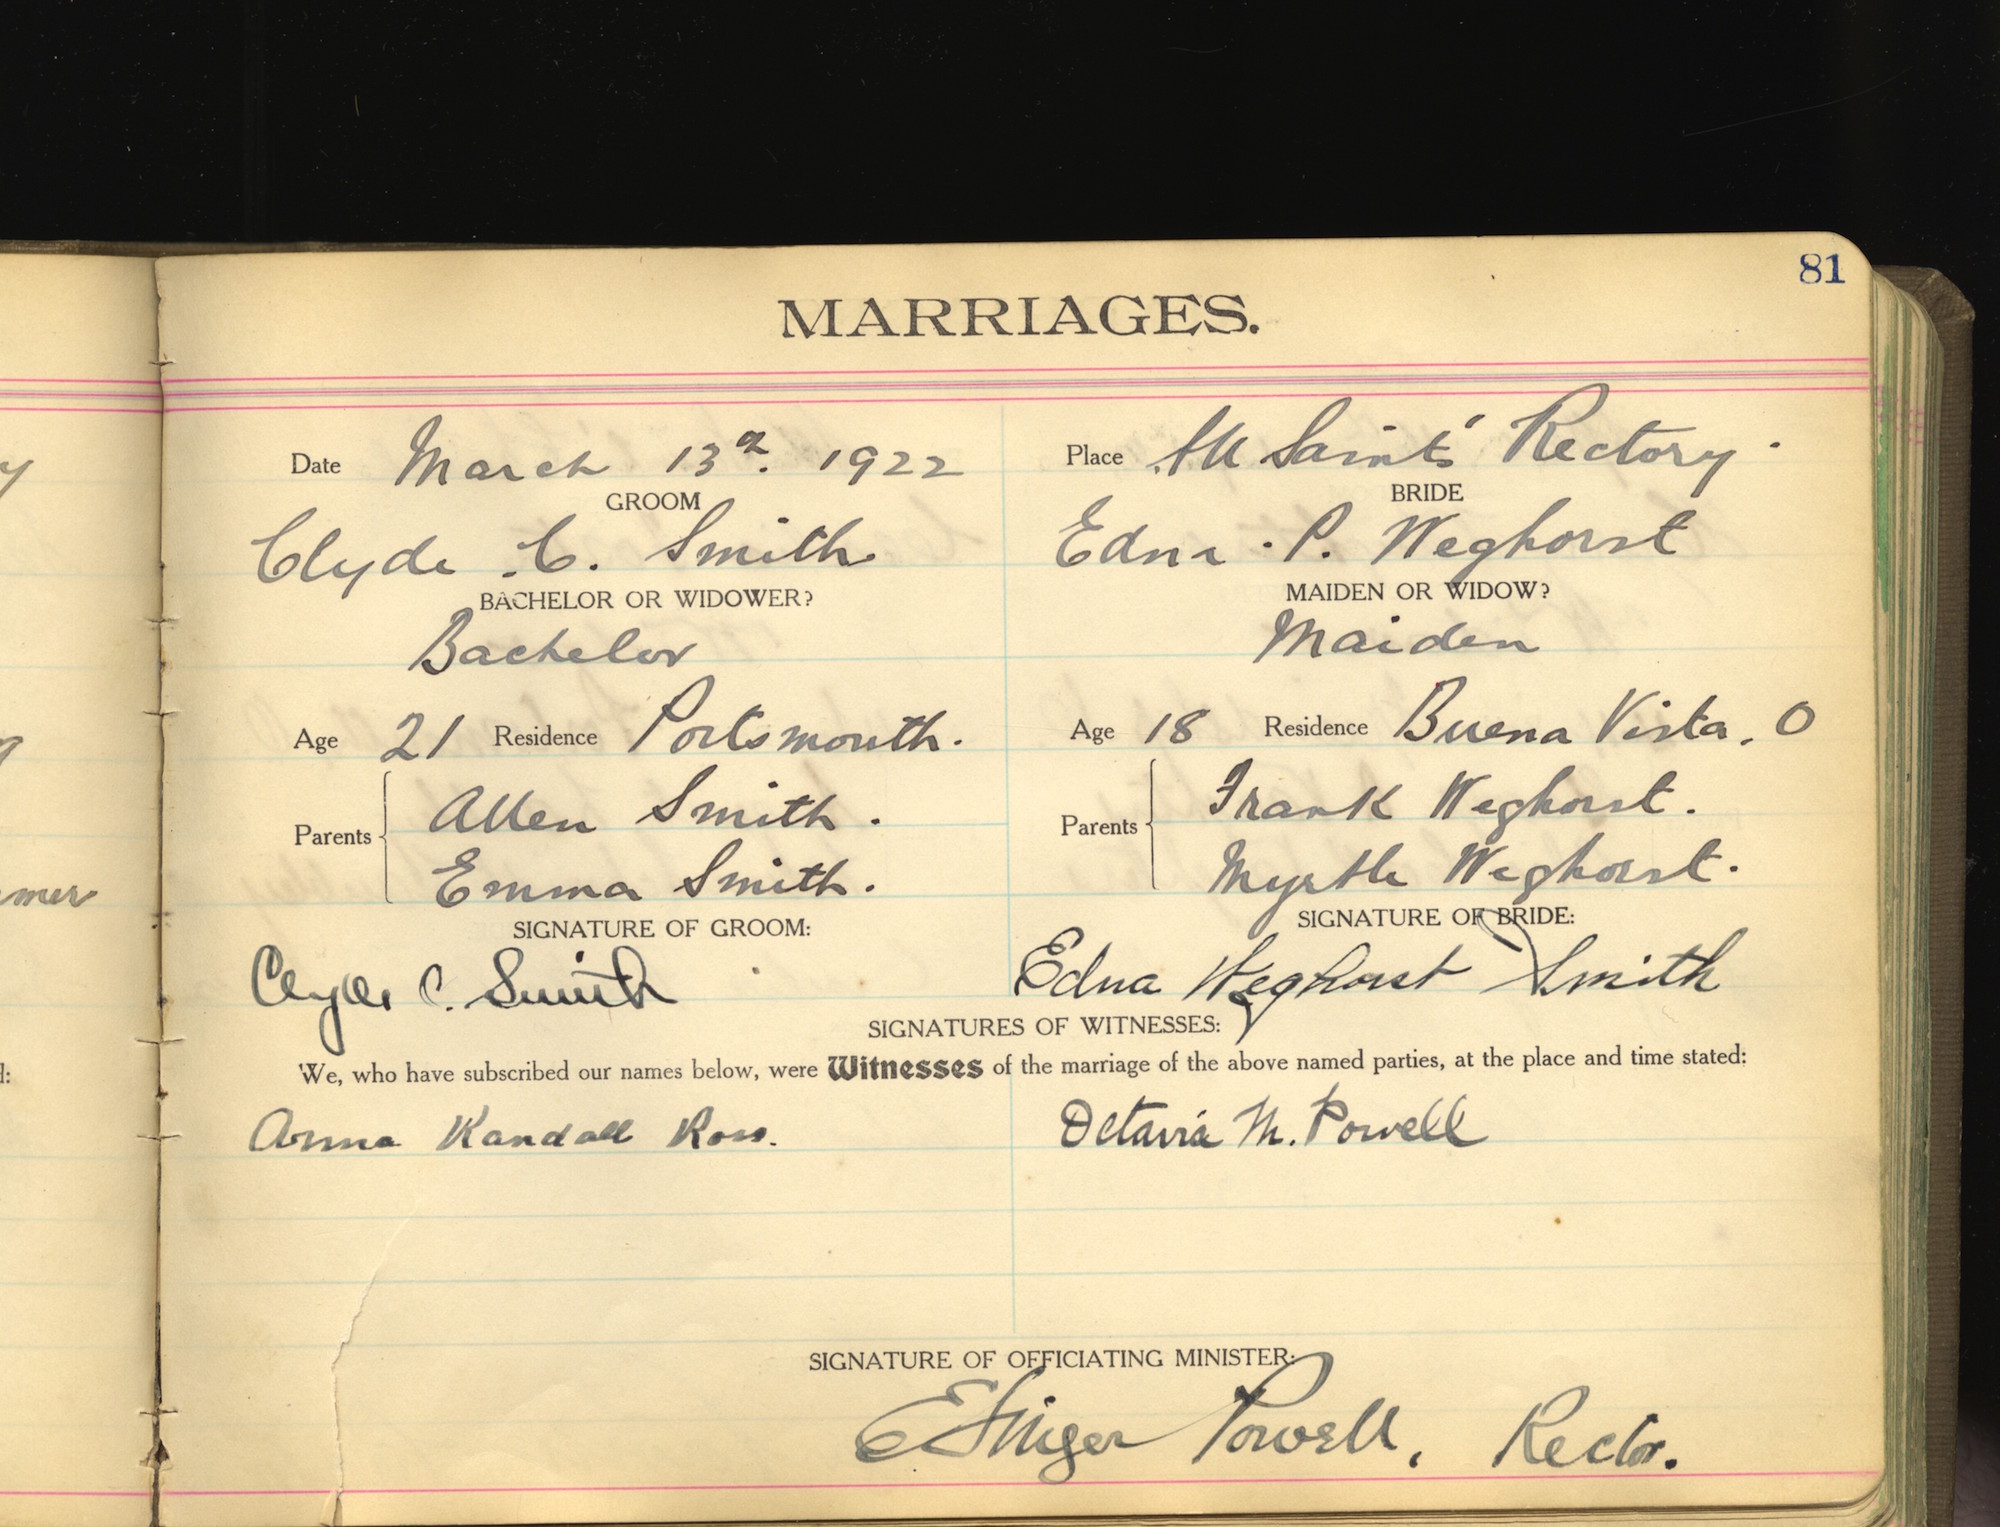 81
MARRIAGES.
Date March 13th. 1922 Place All Saints' Rectory.
GROOM BRIDE
Clyde C. Smith Edna P. Weghorst
BACHELOR OR WIDOWER? MAIDEN OR WIDOW?
Bachelor Maiden
Age 21 Residence Portsmouth. Age 18 Residence Buena Vista, O
Parents Allen Smith. Parents Frank Weghorst.
Emma Smith. Myrtle Weghorst.
SIGNATURE OF GROOM: SIGNATURE OF BRIDE:
Clyde C. Smith Edna Weghorst Smith
SIGNATURES OF WITNESSES:
We, who have subscribed our names below, were Witnesses of the marriage of the above named parties, at the place and time stated:
Anna Randall Ross. Octavia M. Powell
SIGNATURE OF OFFICIATING MINISTER:
E Ainger Powell, Rector.